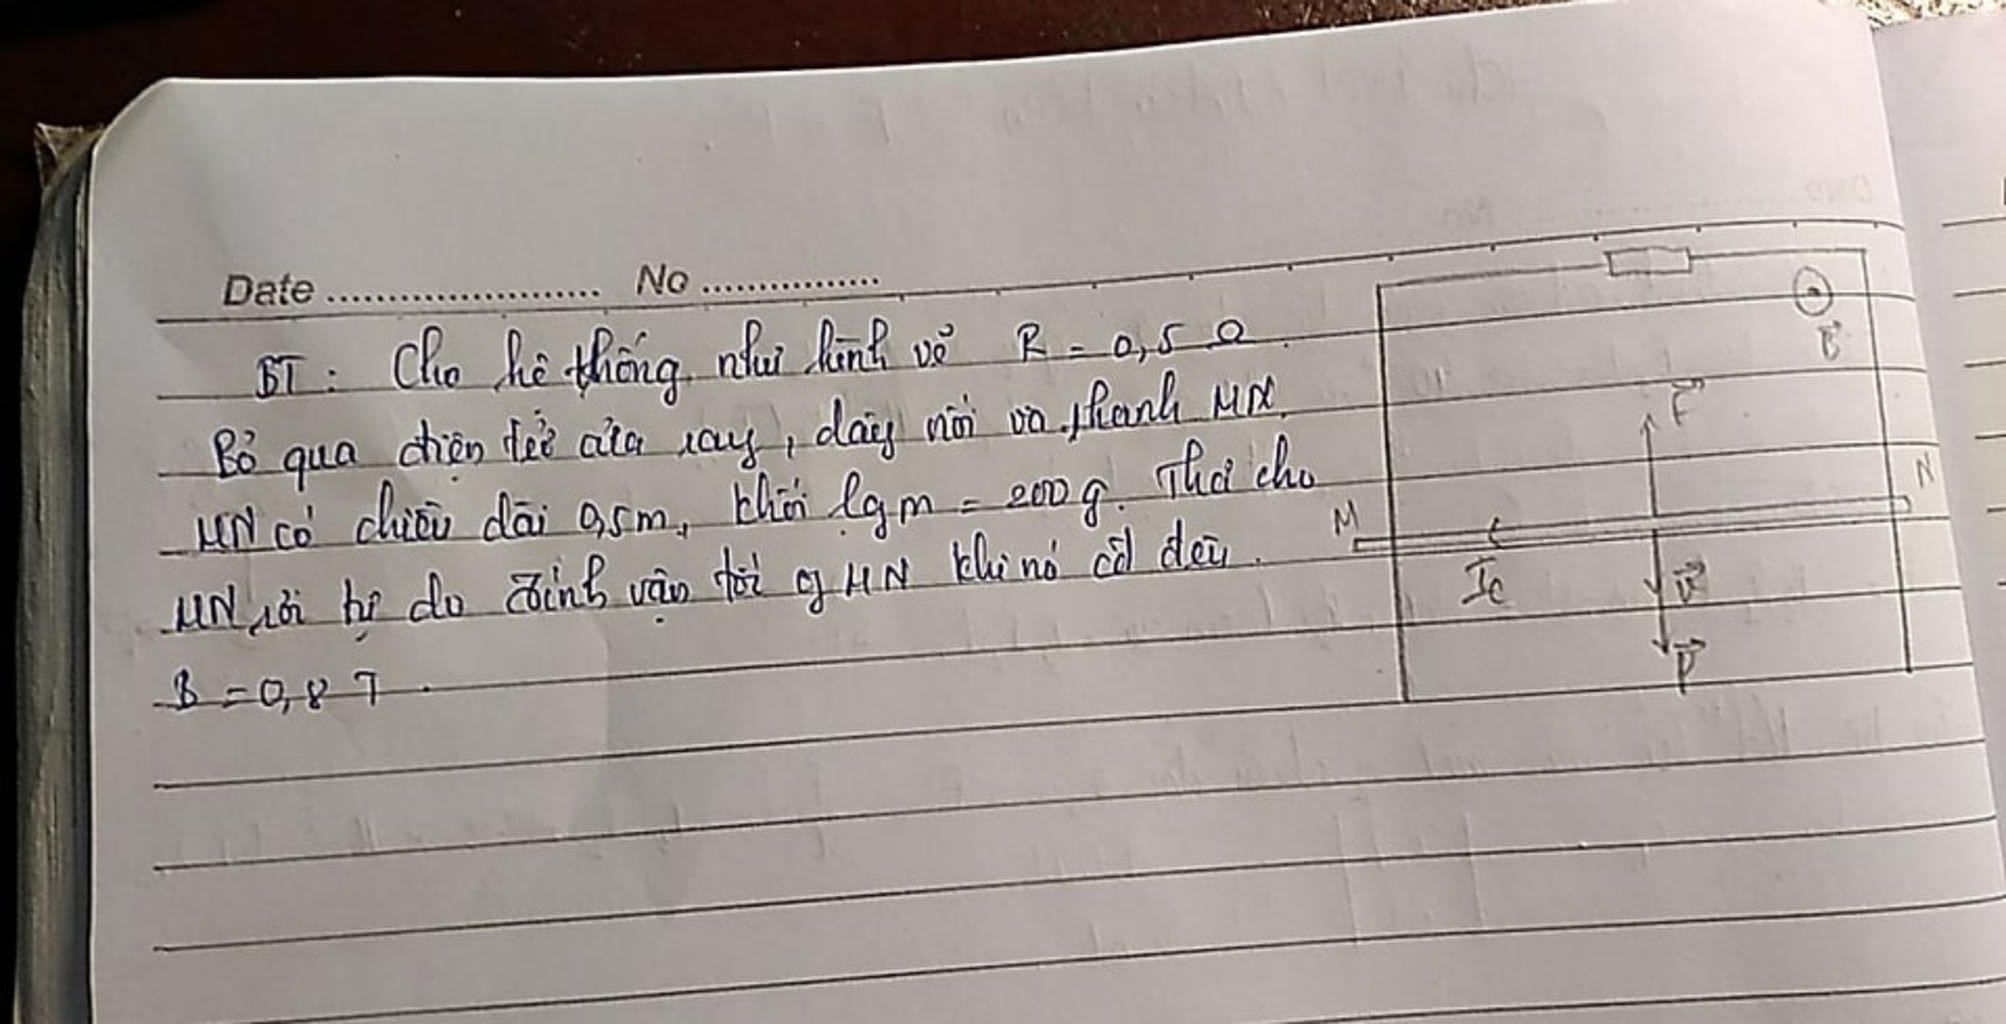 Date ........................ No ................
BT : Cho hệ thống như hình vẽ R = 0,5 Ω .
Bỏ qua điện trở của ray, dây nối và thanh MN.
MN có chiều dài 0,5m, khối lg m = 200 g. Thả cho
MN rơi tự do Tính vận tốc cg MN khi nó cđ đều .
B = 0,8 T .
B
F
M
N
Ic
v
P